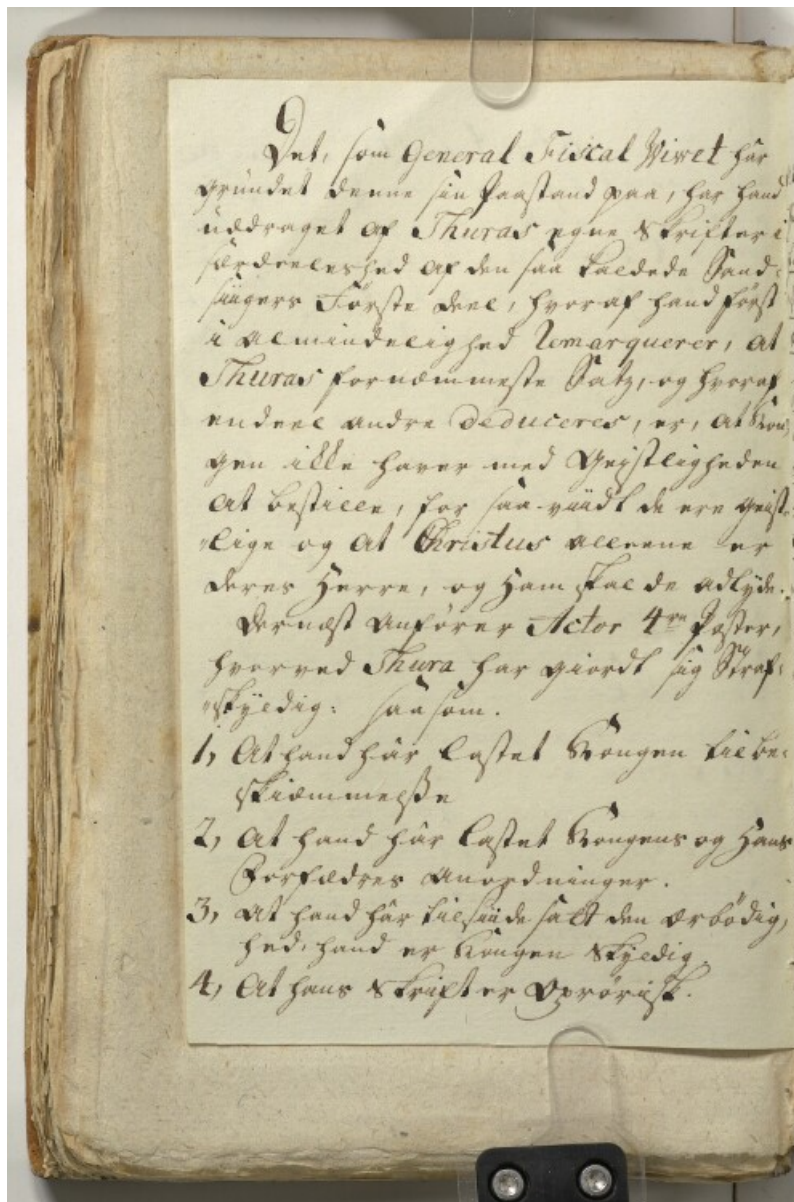 Det, som General Fiscal Wiwet har
grundet denne sin Paastand paa, har hand
uddraget af Thuras egne Skrifter i
særdeeleshed af den saa kaldede Sand-
siigers Første Deel, hvoraf hand først
i Almindelighed Remarquerer, at
Thuras fornæmmeste Satz, og hvoraf
en deel andre deduceres, er, at Kon-
gen ikke haver med Geistligheden
at bestille, for saa-viidt de ere geist-
lige og at Christus alleene er
deres Herre, og Ham skal de adlyde.
Dernæst anfører Actor 4re Poster,
hvorved Thura har giordt sig Straf-
skyldig: saasom.
1, At hand har lastet Kongen til be-
skiæmmelsse
2, At hand har lastet Kongens og Hans
Forfædres Anordninger.
3, At hand har tilsiide satt den Ærbødig,
hed, hand er Kongen skyldig.
4, At hans Skrift er Oprørisk.